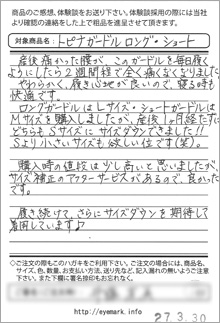 商品のご感想、体験談をお寄せ下さい。体験談採用の際には当社より次回のご優待と粗品を進呈させて頂きます。
対象商品名：トピナガードル ロング・ショート
産後痛かった腰が、このガードルを毎日履く
ようにしたら2週間程で全く痛くなくなりました。
やわらかく、履き心地が良いので、寝る時も
快適です。
ロングガードルはLサイズ・ショートガードルは
Mサイズを購入しましたが、産後1ヶ月経たずに
どちらもSサイズにサイズダウンできました!!
Sより小さいサイズも欲しい位です(笑)。
購入時の値段は少し高いと思いましたが、
サイズ補正のアフターサービスがあるので、良かった
です。
履き続けて、さらにサイズダウンを期待して
着用しています♪
◇ご注文の際もこのハガキをご利用下さい。ご注文の場合には、商品名、
サイズ、色、数量、お支払い方法、送り先など、記入漏れの無いようご注意
下さい。また下欄に署名捺印もお忘れなく。
http://eyemark.info
27.3.30